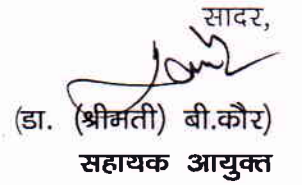 सादर,
(डा. (श्रीमती) बी.कौर)
सहायक आयुक्त